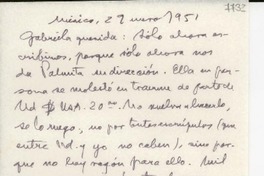 1132
México, 29 enero 1951
Gabriela querida: Sólo ahora es-
cribimos, porque sólo ahora nos
da Palmita su dirección. Ella en per-
sona se molestó en traerme de parte de
Ud $ USA. 20.00. No vuelva a hacerlo,
se lo ruego, no por tontos escrúpulos (que
entre Ud. y yo no caben), sino por-
que no hay razón para ello. Mil